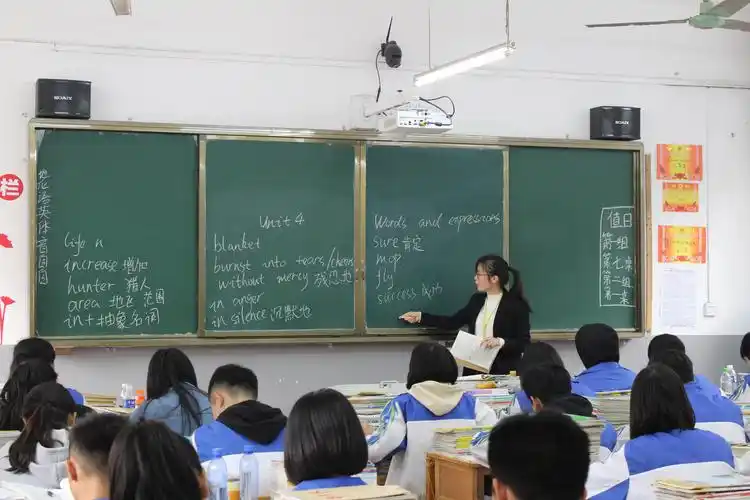 栏
地化语英体
life n
increase 增加
hunter 猎人
area 地区 范围
in+抽象名词
Unit 4
blanket
burst into tears/cheers
without mercy 残忍地
in anger
in silence 沉默地
Words and expressions
sure 肯定
mop
fly
success 成功
值日
第一组
第七桌
第二组
第一桌